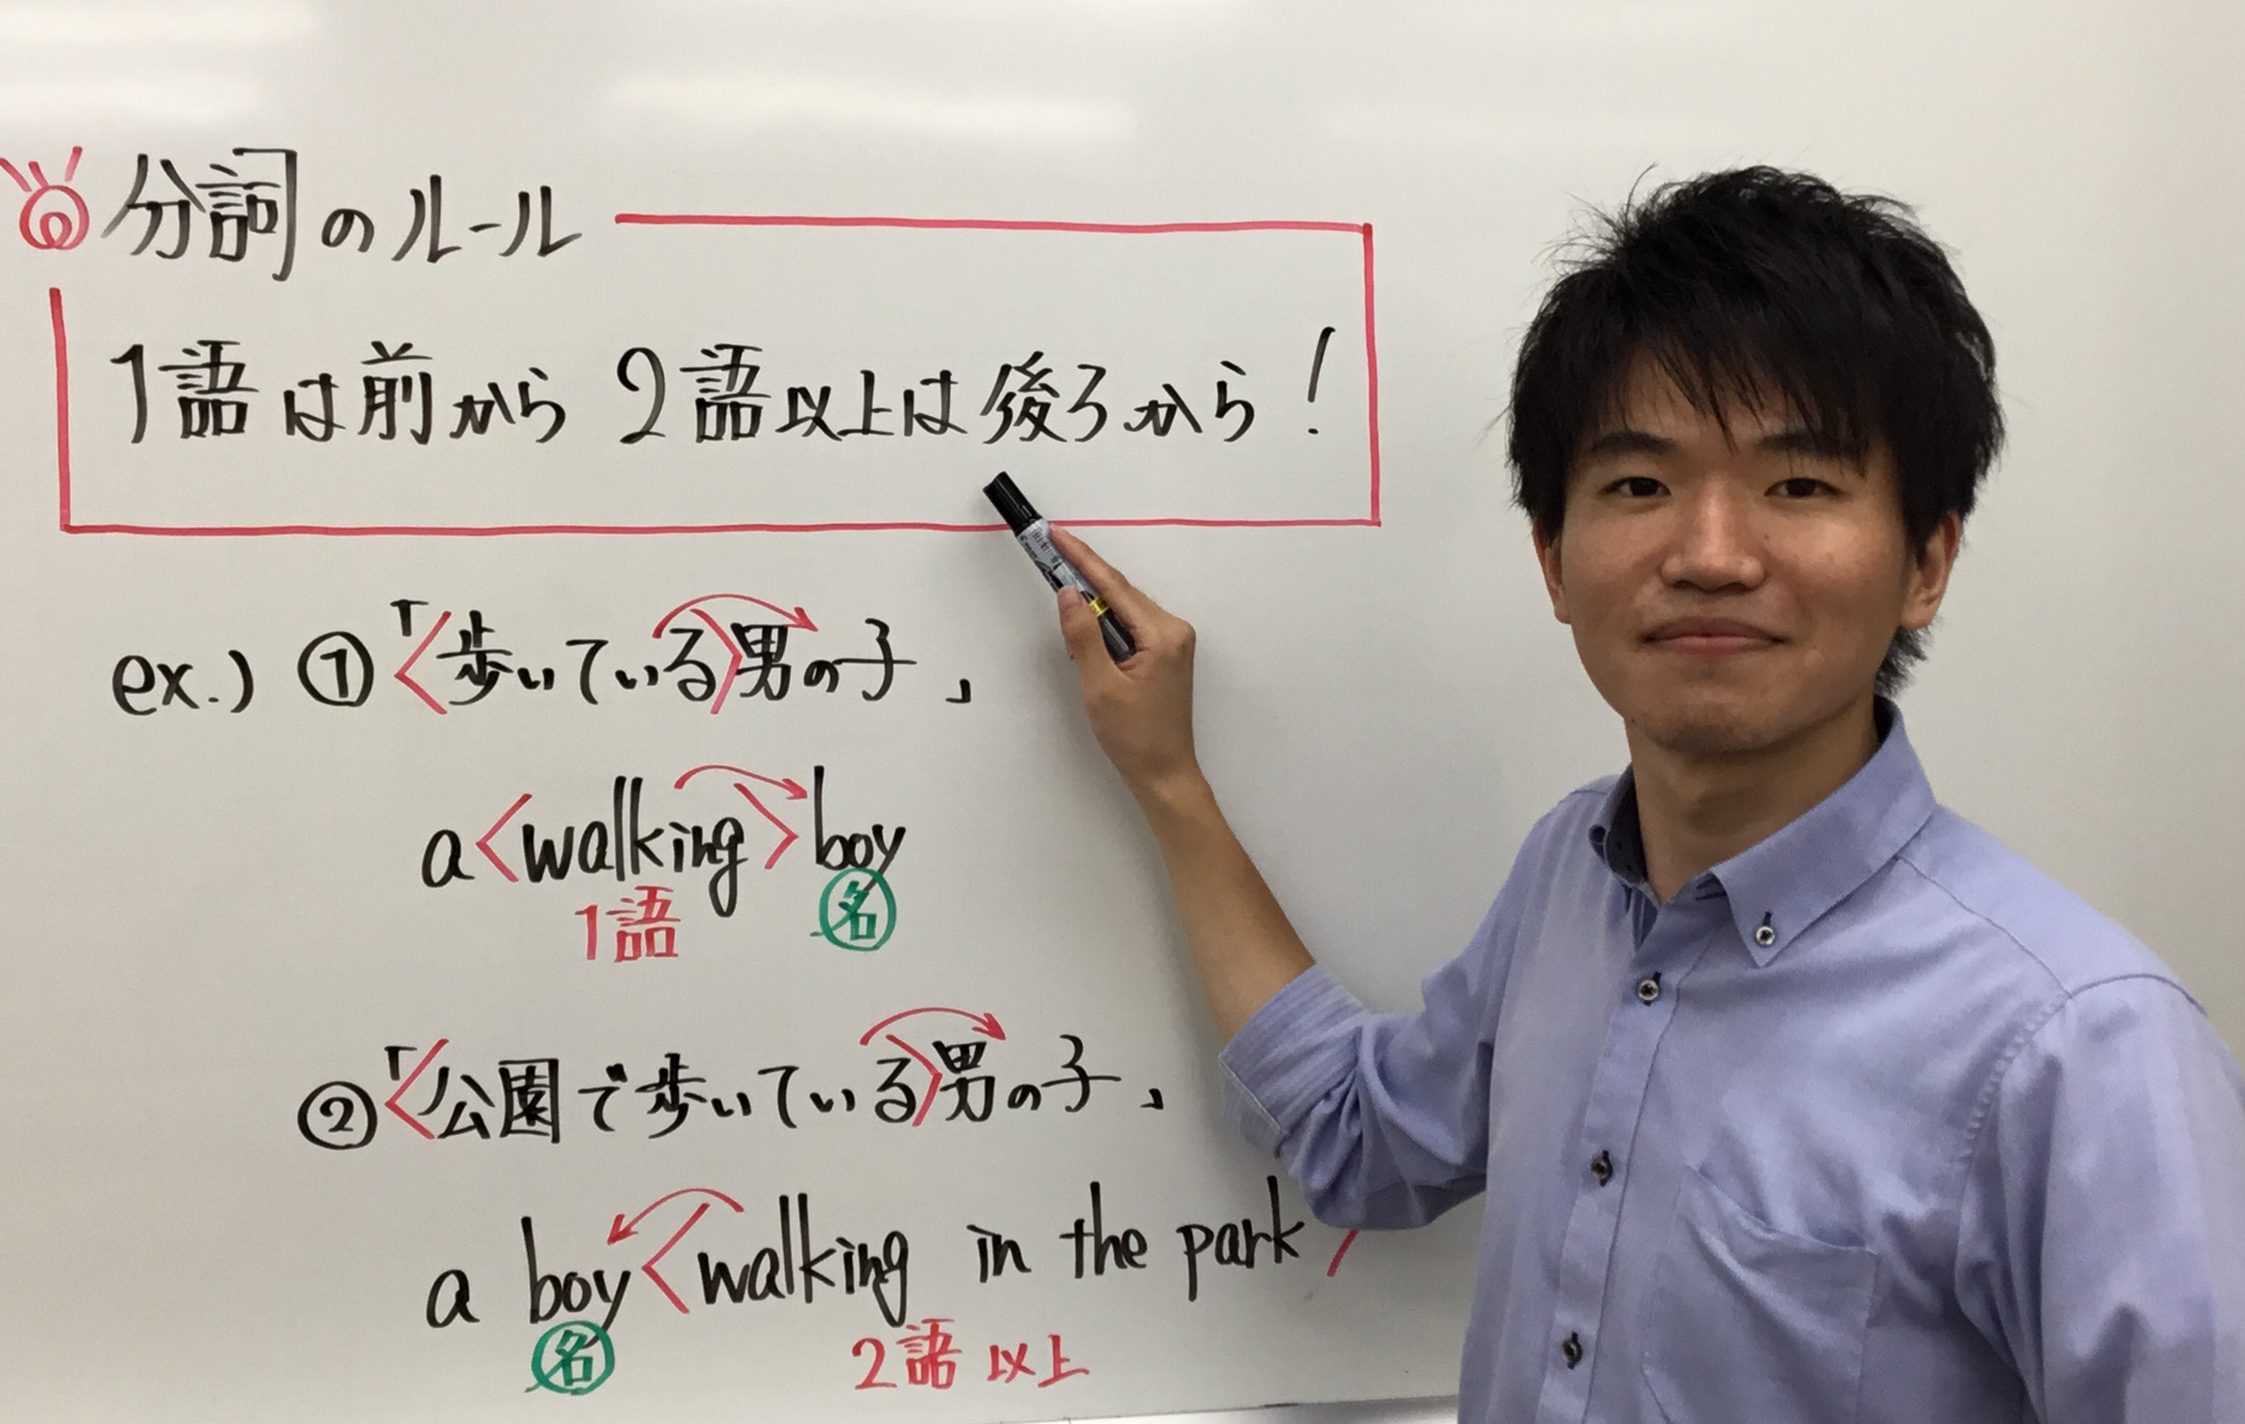 ◎分詞のルール
1語は前から 2語以上は後ろから!
ex.) ①「<歩いている>男の子」
a <walking> boy
1語 名
②「<公園で歩いている>男の子」
a boy <walking in the park
名 2語以上